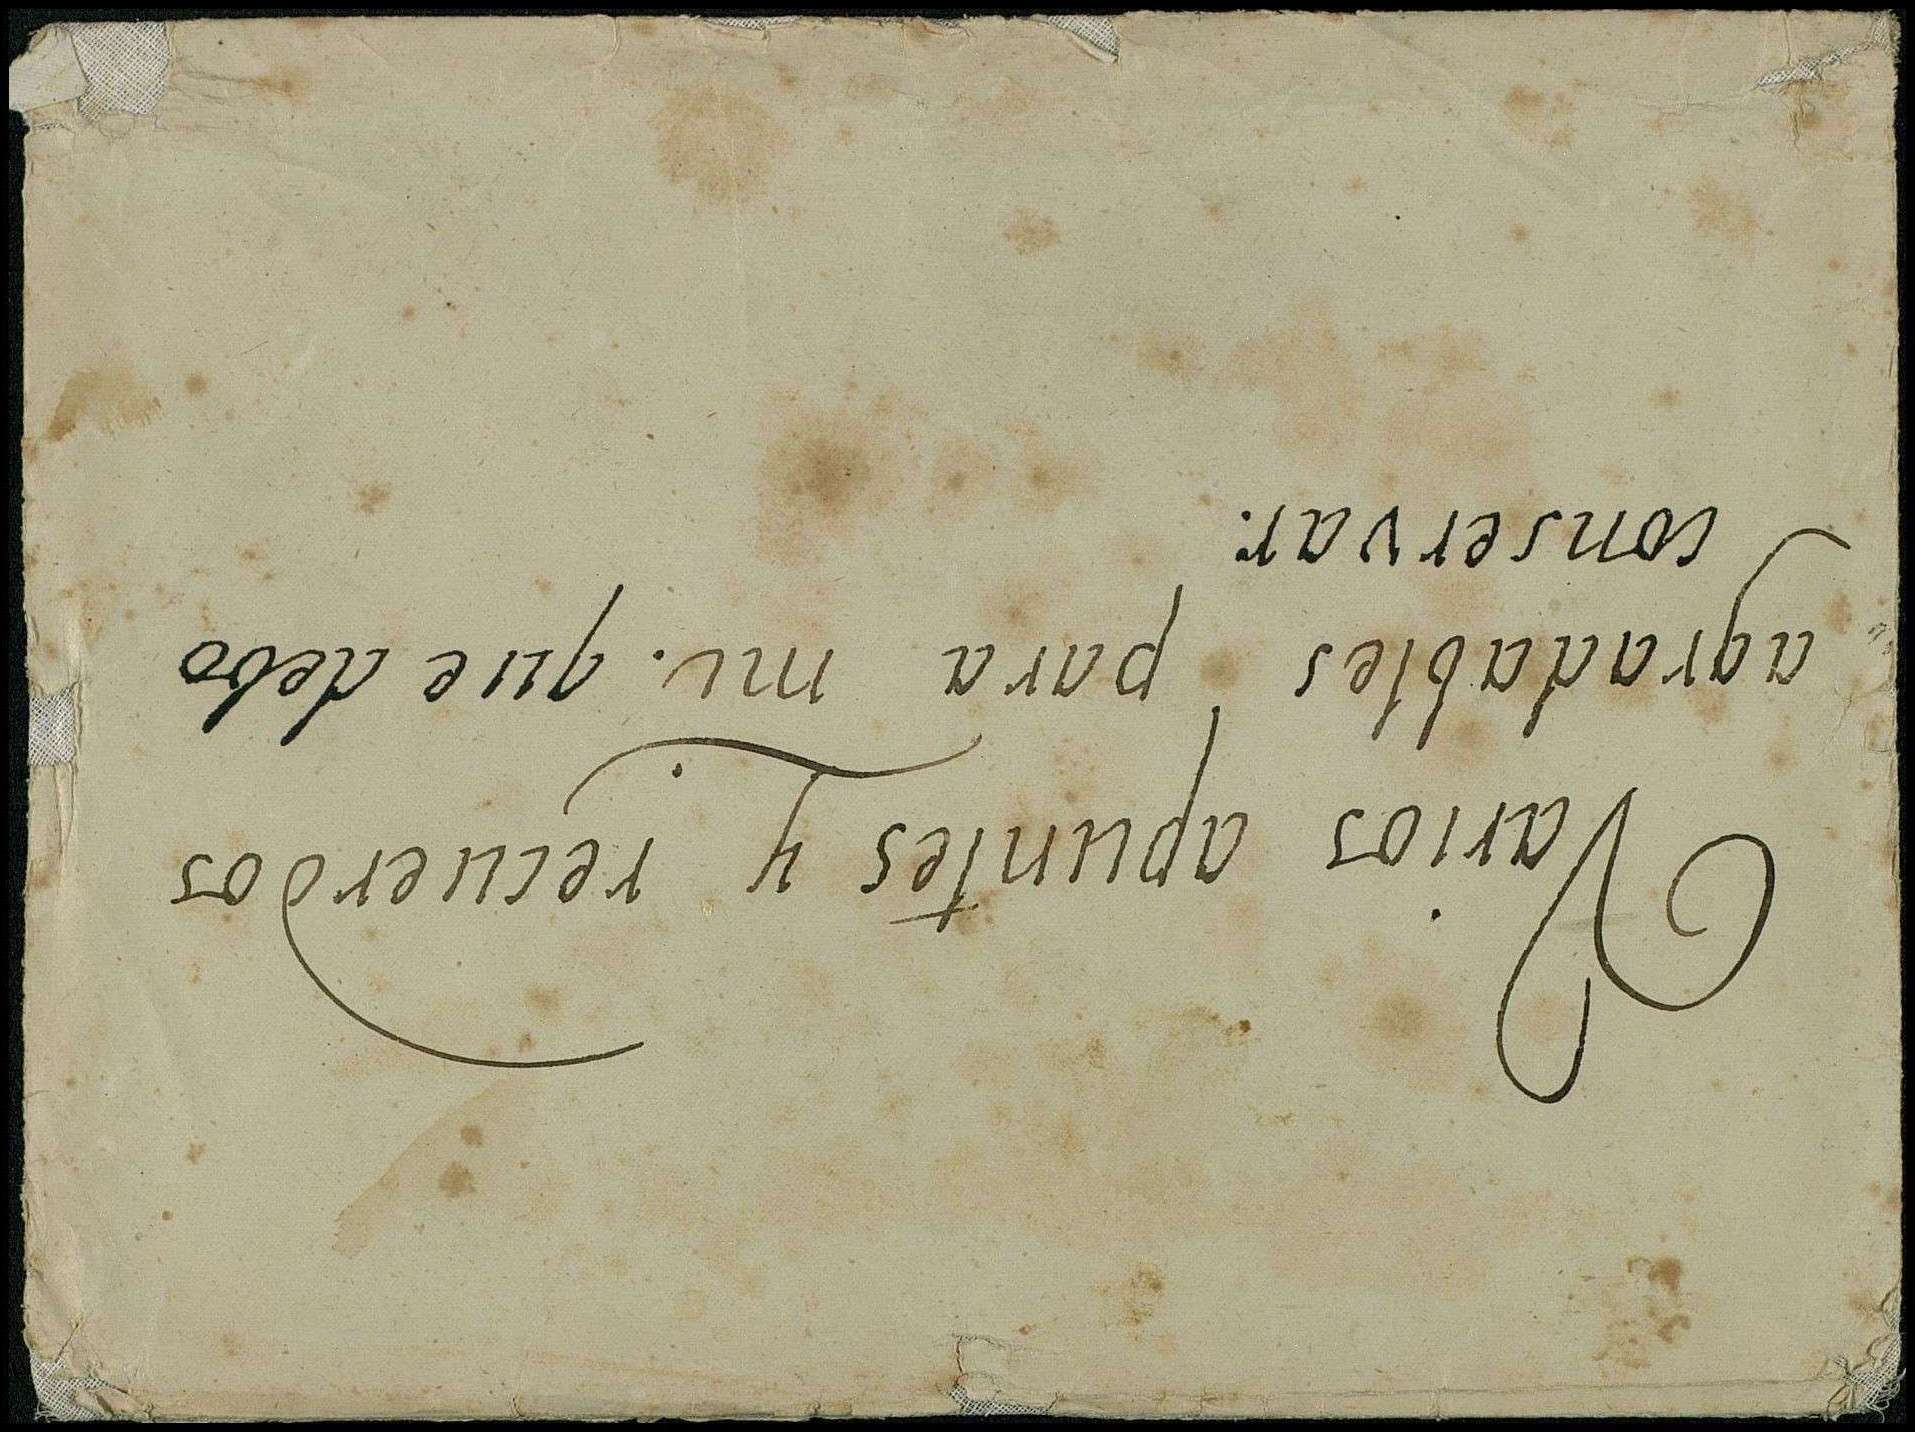 Varios apuntes y recuerdos
agradables para mi. que debo
conservar.